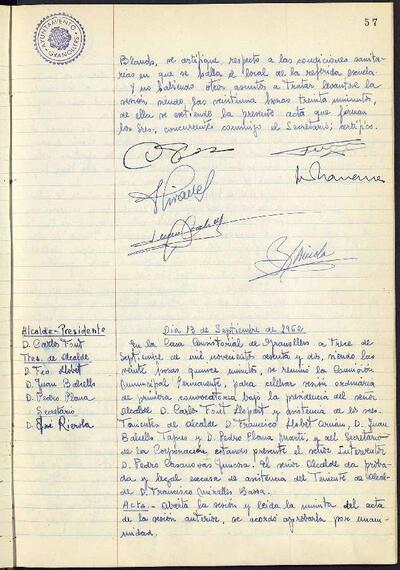 57
AYUNTAMIENTO
GRANOLLERS
Blando, se certifique respecto a las condiciones sanita-
rias en que se halla el local de la referida escuela.
Y no habiendo otros asuntos a tratar levantose la
sesión siendo las veintiuna horas treinta minutos,
de ella se extiende la presente acta que firman
los Sres. concurrentes conmigo el Secretario; certifico.
Alcalde-Presidente
D. Carlos Font
Tres. de Alcalde
D. Fco. Llobet
D. Juan
D. Pedro Plana
Secretario
D. José
Dia 13 de Septiembre de 1962
En la Casa Consistorial de Granollers a trece de
Septiembre de mil novecientos sesenta y dos, siendo las
veinte horas quince minutos, se reunió la Comisión
Municipal Permanente, para celebrar sesión ordinaria
de primera convocatoria bajo la presidencia del señor
Alcalde D. Carlos Font Llopart y asistencia de los sres.
Tenientes de Alcalde D. Francisco Llobet Arnan, D. Juan
Tapies y D. Pedro Plana Martí, y del Secretario
de la Corporación, estando presente el señor Interventor
D. Pedro Casanovas. El señor Alcalde da proba-
da y legal excusa de asistencia del Teniente de Alcal-
de D. Francisco Miralles
Acta.- Abierta la sesión y leida la minuta del acta
de la sesión anterior, se acordó aprobarla por unani-
midad.